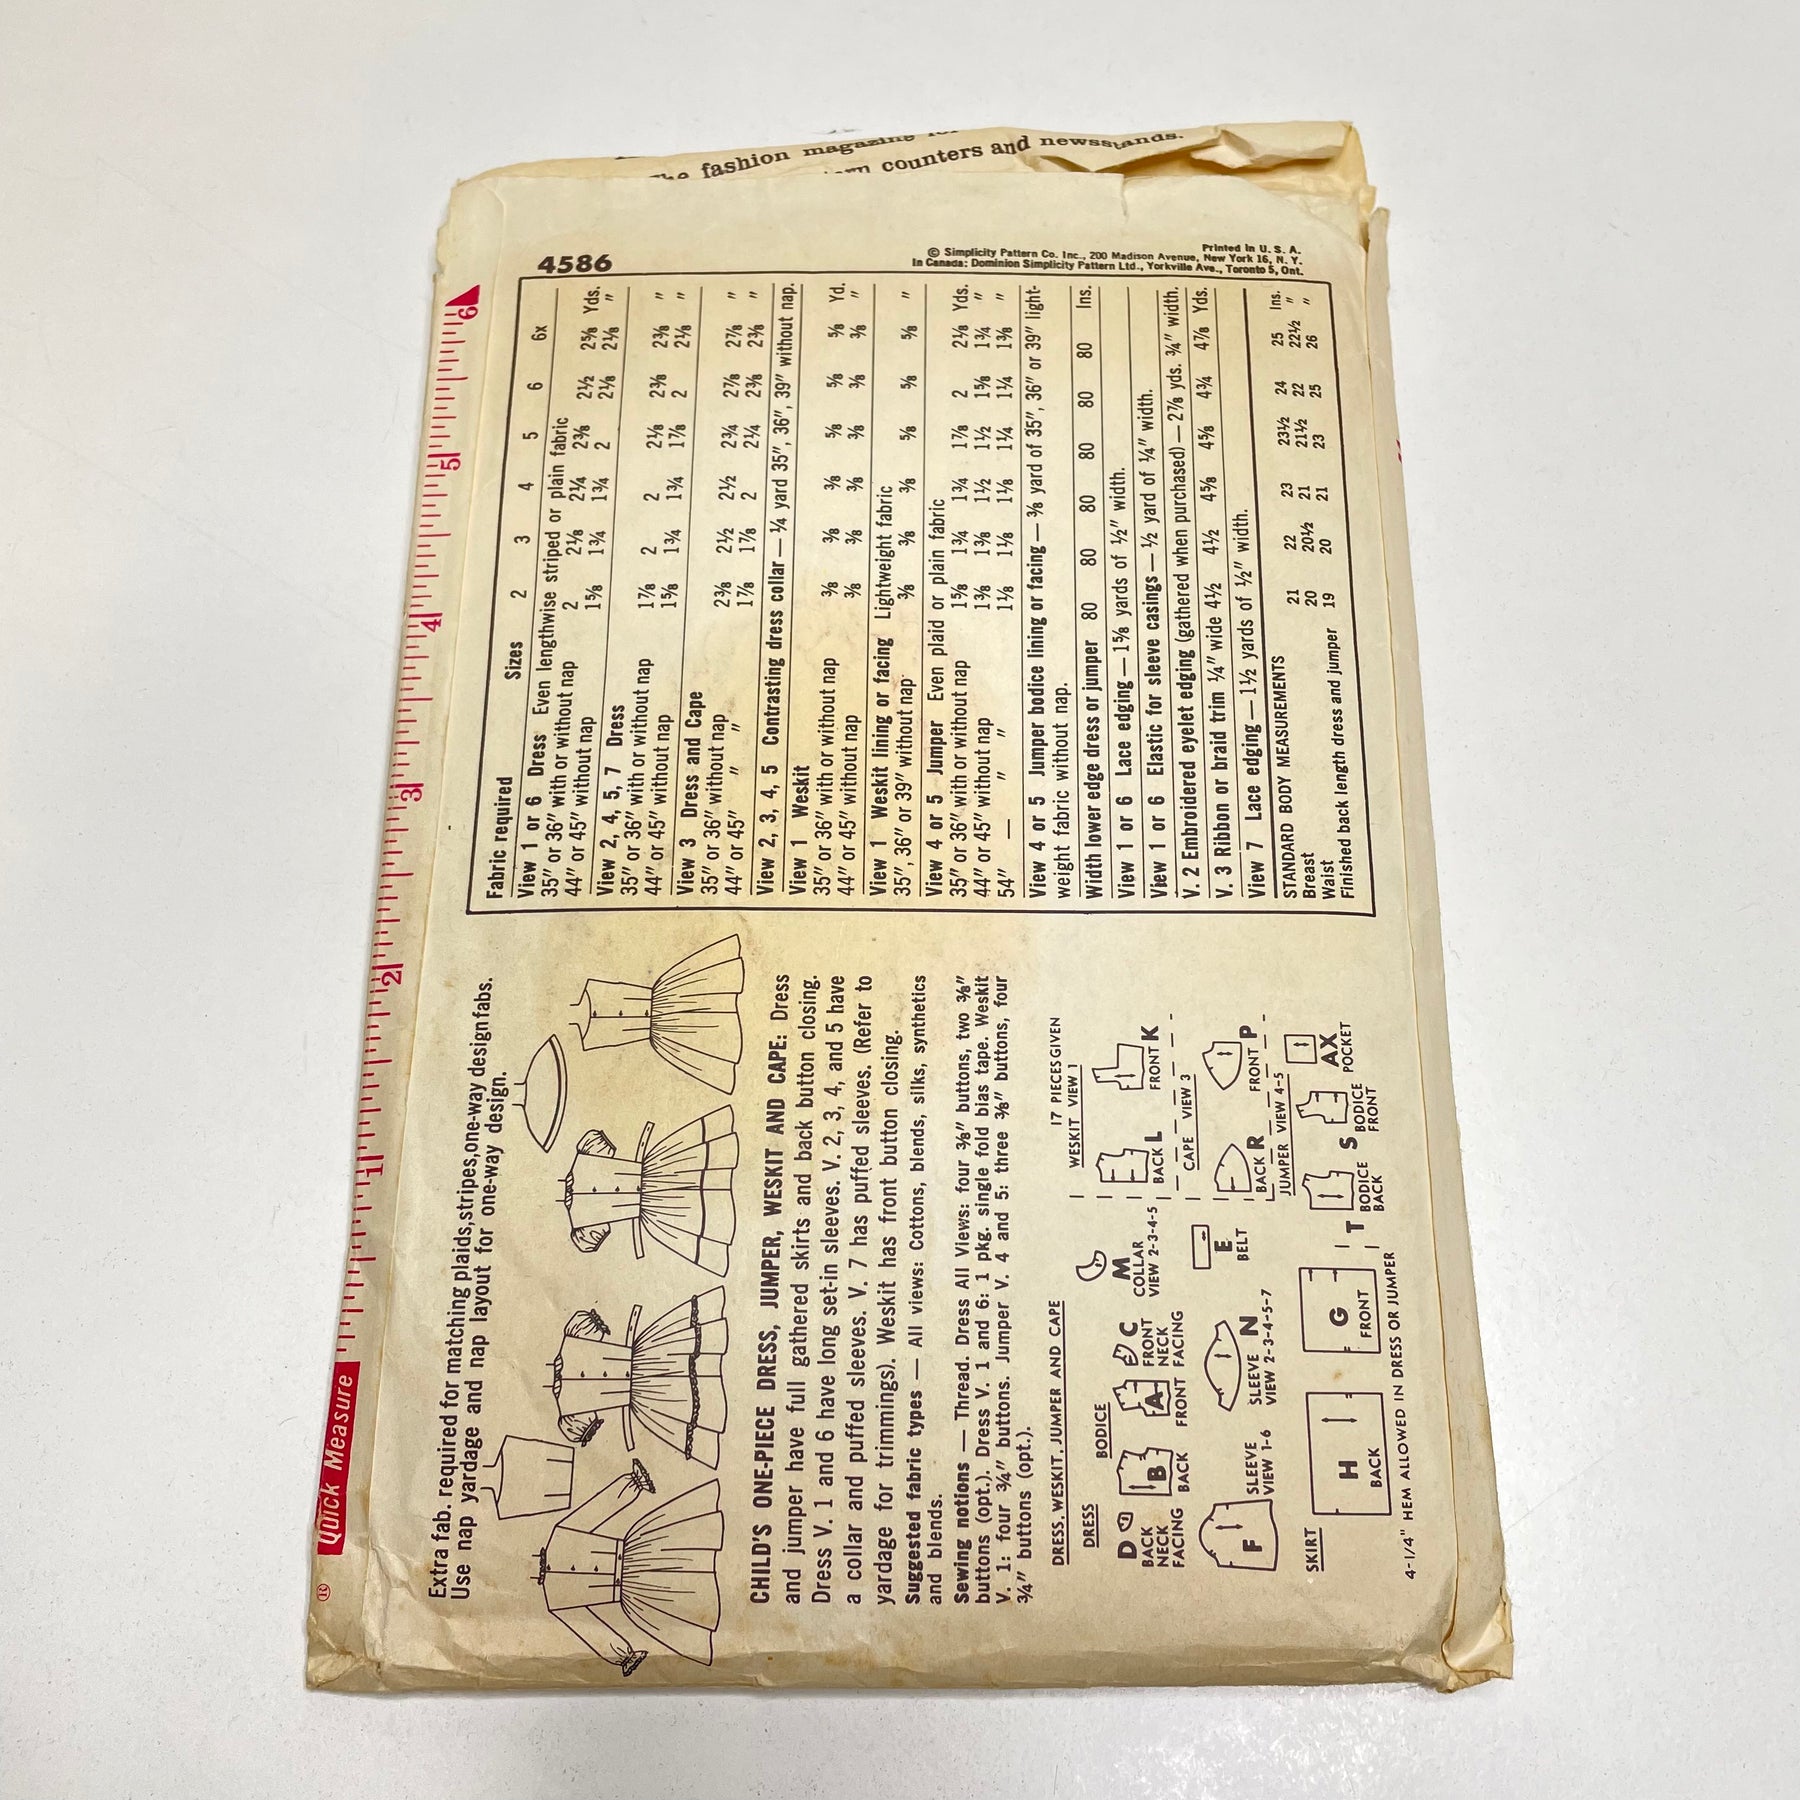 The fashion magazine
counters and newsstands.
4586
© Simplicity Pattern Co. Inc., 200 Madison Avenue, New York 16, N. Y.
Printed in U. S. A.
In Canada: Dominion Simplicity Pattern Ltd., Yorkville Ave., Toronto 5, Ont.
® Quick Measure 1 2 3 4 5 6
Extra fab. required for matching plaids, stripes, one-way design fabs.
Use nap yardage and nap layout for one-way design.
CHILD'S ONE-PIECE DRESS, JUMPER, WESKIT AND CAPE: Dress
and jumper have full gathered skirts and back button closing.
Dress V. 1 and 6 have long set-in sleeves. V. 2, 3, 4, and 5 have
a collar and puffed sleeves. V. 7 has puffed sleeves. (Refer to
yardage for trimmings). Weskit has front button closing.
Suggested fabric types — All views: Cottons, blends, silks, synthetics
and blends.
Sewing notions — Thread. Dress All Views: four 3/8" buttons, two 3/8"
buttons (opt.). Dress V. 1 and 6: 1 pkg. single fold bias tape. Weskit
V. 1: four 3/4" buttons. Jumper V. 4 and 5: three 3/8" buttons, four
3/4" buttons (opt.).
17 PIECES GIVEN
DRESS, WESKIT, JUMPER AND CAPE
DRESS
BODICE
D BACK NECK FACING
B BACK
A FRONT
C FRONT NECK FACING
M COLLAR VIEW 2-3-4-5
F SLEEVE VIEW 1-6
N SLEEVE VIEW 2-3-4-5-7
E BELT
SKIRT
H BACK
G FRONT
WESKIT VIEW 1
BACK L
FRONT K
CAPE VIEW 3
BACK R
FRONT P
JUMPER VIEW 4-5
T BODICE BACK
S BODICE FRONT
AX POCKET
4-1/4" HEM ALLOWED IN DRESS OR JUMPER
Fabric required Sizes 2 3 4 5 6 6x
View 1 or 6 Dress Even lengthwise striped or plain fabric
35" or 36" with or without nap 2 2 1/8 2 1/4 2 3/8 2 1/2 2 5/8 Yds.
44" or 45" without nap 1 5/8 1 3/4 1 3/4 2 2 1/8 2 1/8 "
View 2, 4, 5, 7 Dress
35" or 36" with or without nap 1 7/8 2 2 2 1/8 2 3/8 2 3/8 "
44" or 45" without nap 1 5/8 1 3/4 1 3/4 1 7/8 2 2 1/8 "
View 3 Dress and Cape
35" or 36" without nap 2 3/8 2 1/2 2 1/2 2 3/4 2 7/8 2 7/8 "
44" or 45" " " 1 7/8 1 7/8 2 2 1/4 2 3/8 2 3/8 "
View 2, 3, 4, 5 Contrasting dress collar — 1/4 yard 35", 36", 39" without nap.
View 1 Weskit
35" or 36" with or without nap 3/8 3/8 3/8 5/8 5/8 5/8 Yd.
44" or 45" with or without nap 3/8 3/8 3/8 3/8 3/8 3/8 "
View 1 Weskit lining or facing Lightweight fabric
35", 36" or 39" without nap 3/8 3/8 3/8 5/8 5/8 5/8 "
View 4 or 5 Jumper Even plaid or plain fabric
35" or 36" with or without nap 1 5/8 1 3/4 1 3/4 1 7/8 2 2 1/8 Yds.
44" or 45" without nap 1 3/8 1 3/8 1 1/2 1 1/2 1 5/8 1 3/4 "
54" — " " 1 1/8 1 1/8 1 1/8 1 1/4 1 1/4 1 3/8 "
View 4 or 5 Jumper bodice lining or facing — 3/8 yard of 35", 36" or 39" light-
weight fabric without nap.
Width lower edge dress or jumper 80 80 80 80 80 80 Ins.
View 1 or 6 Lace edging — 1 5/8 yards of 1/2" width.
View 1 or 6 Elastic for sleeve casings — 1/2 yard of 1/4" width.
V. 2 Embroidered eyelet edging (gathered when purchased) — 2 7/8 yds. 3/4" width.
V. 3 Ribbon or braid trim 1/4" wide 4 1/2 4 1/2 4 5/8 4 5/8 4 3/4 4 7/8 Yds.
View 7 Lace edging — 1 1/2 yards of 1/2" width.
STANDARD BODY MEASUREMENTS
Breast 21 22 23 23 1/2 24 25 Ins.
Waist 20 20 1/2 21 21 1/2 22 22 1/2 "
Finished back length dress and jumper 19 20 21 23 25 26 "